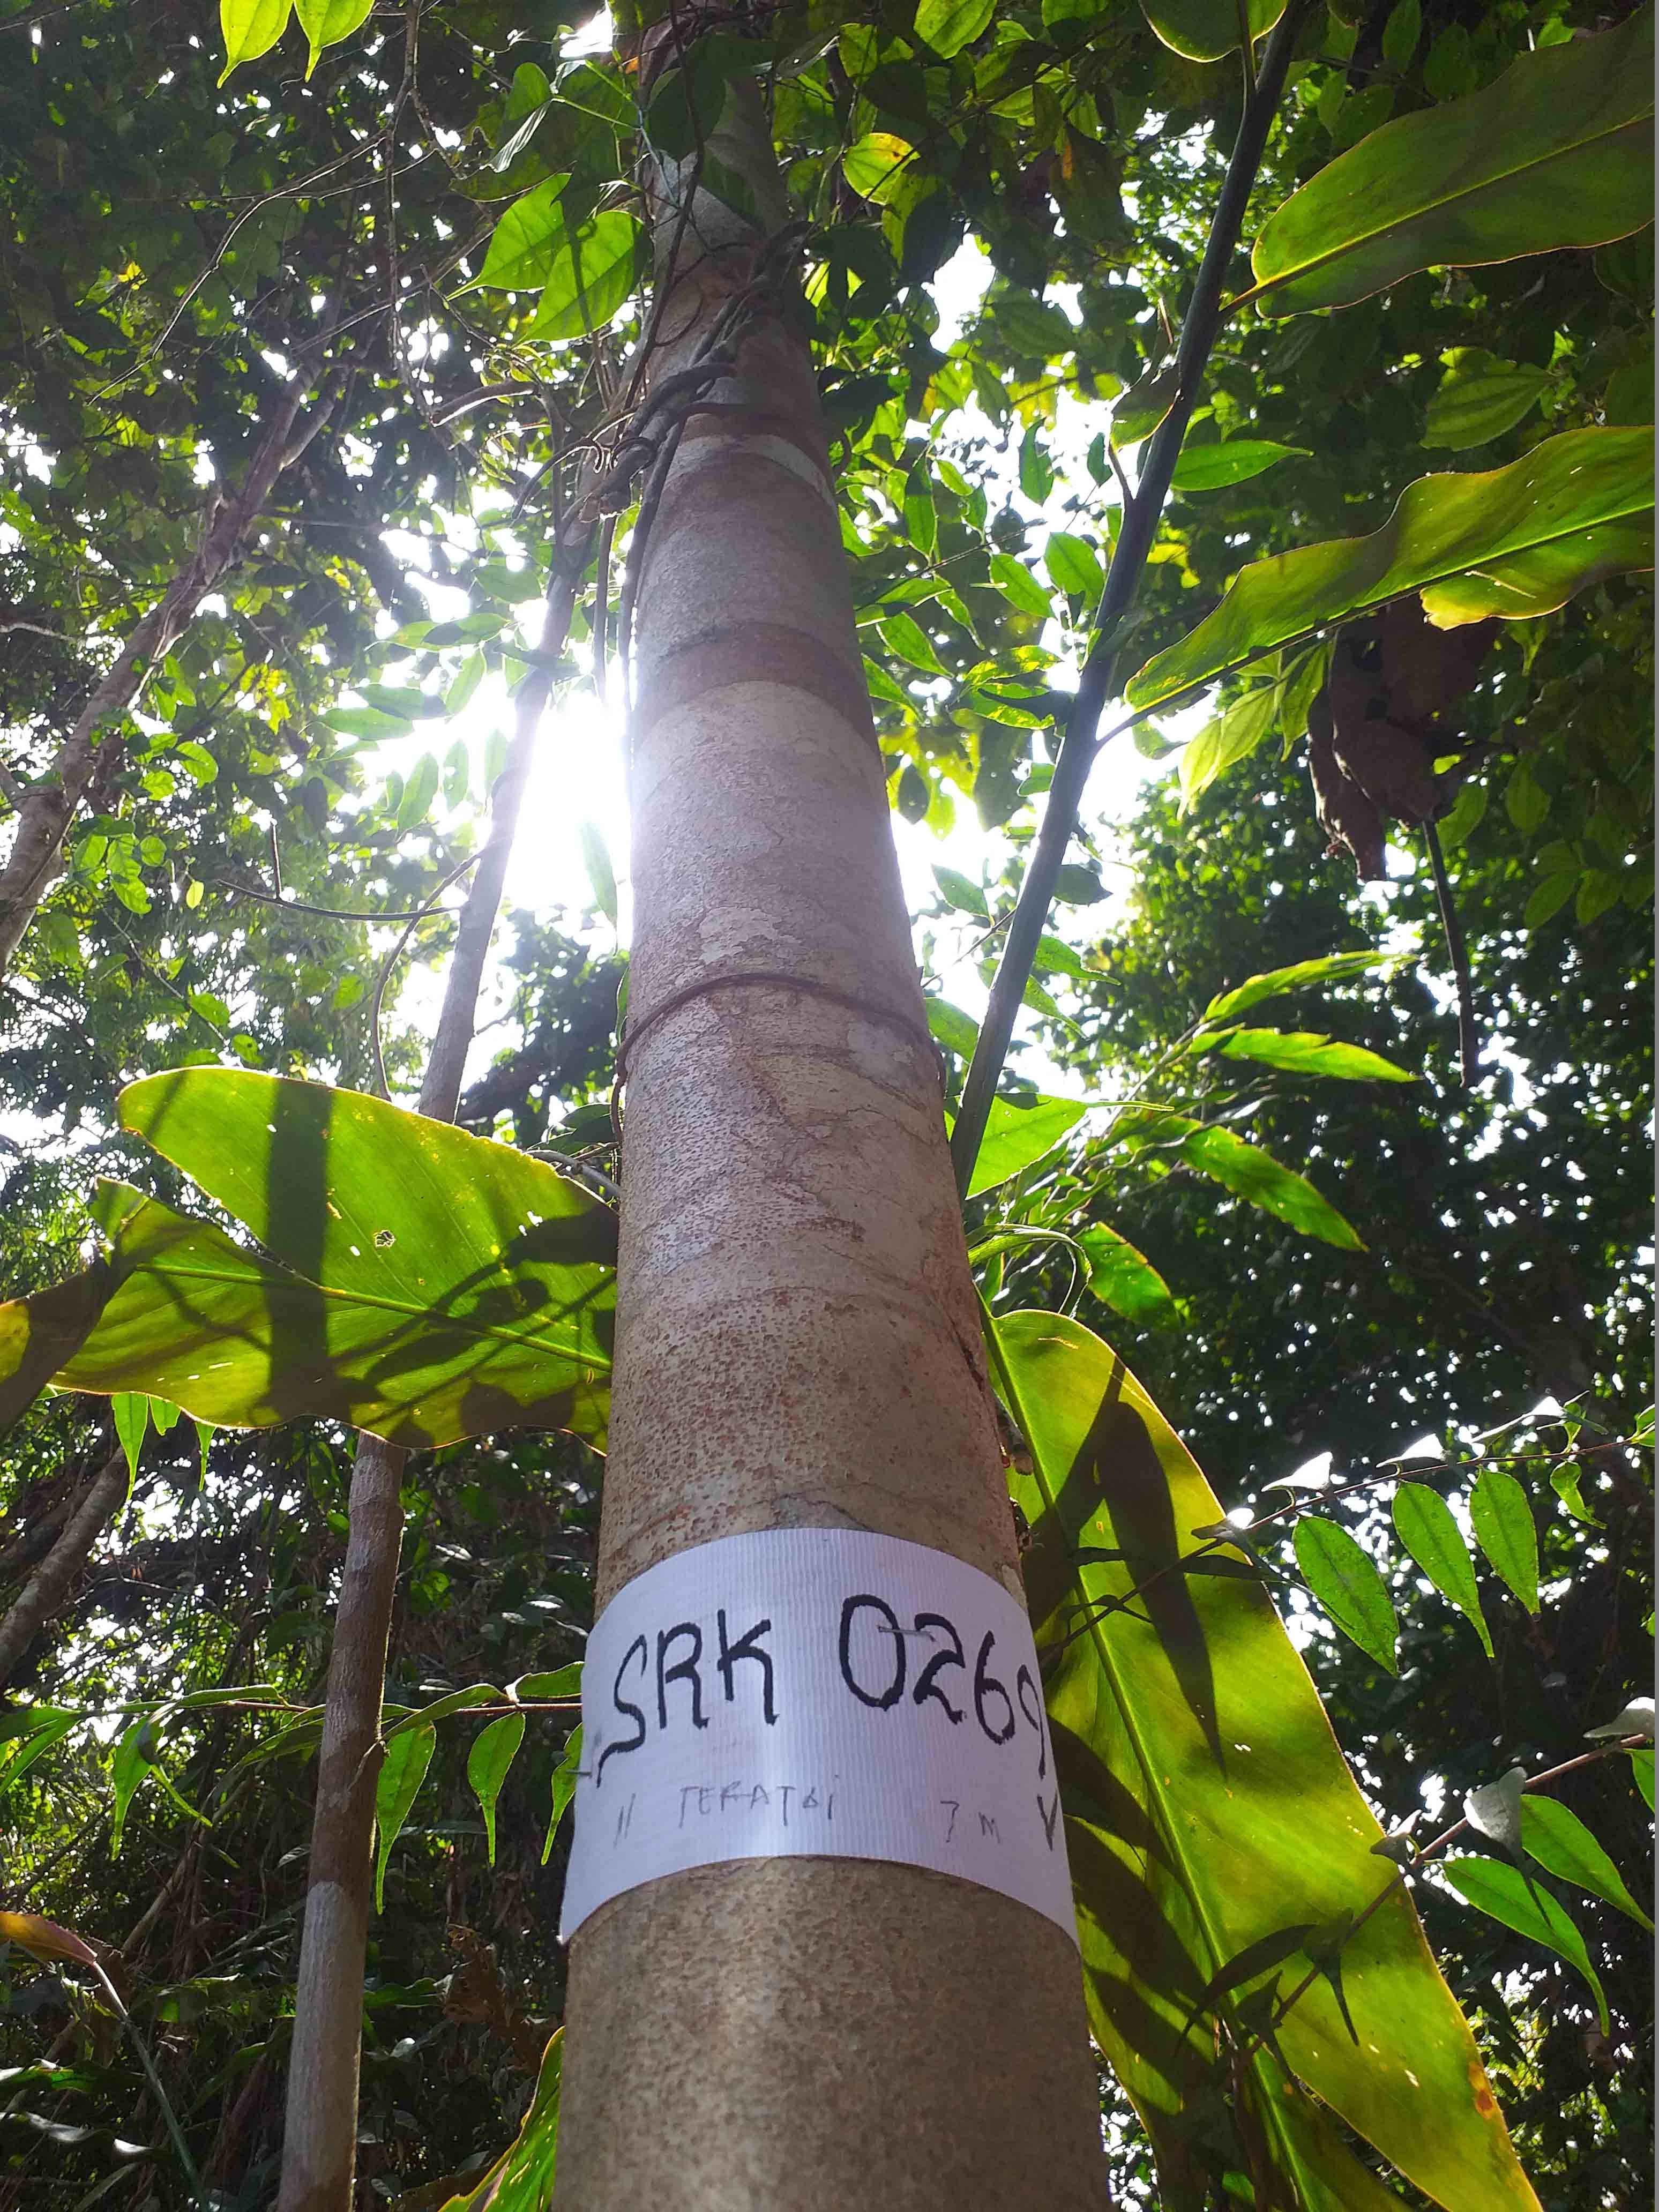 SRK 0269
11 TERATAI 7 m V